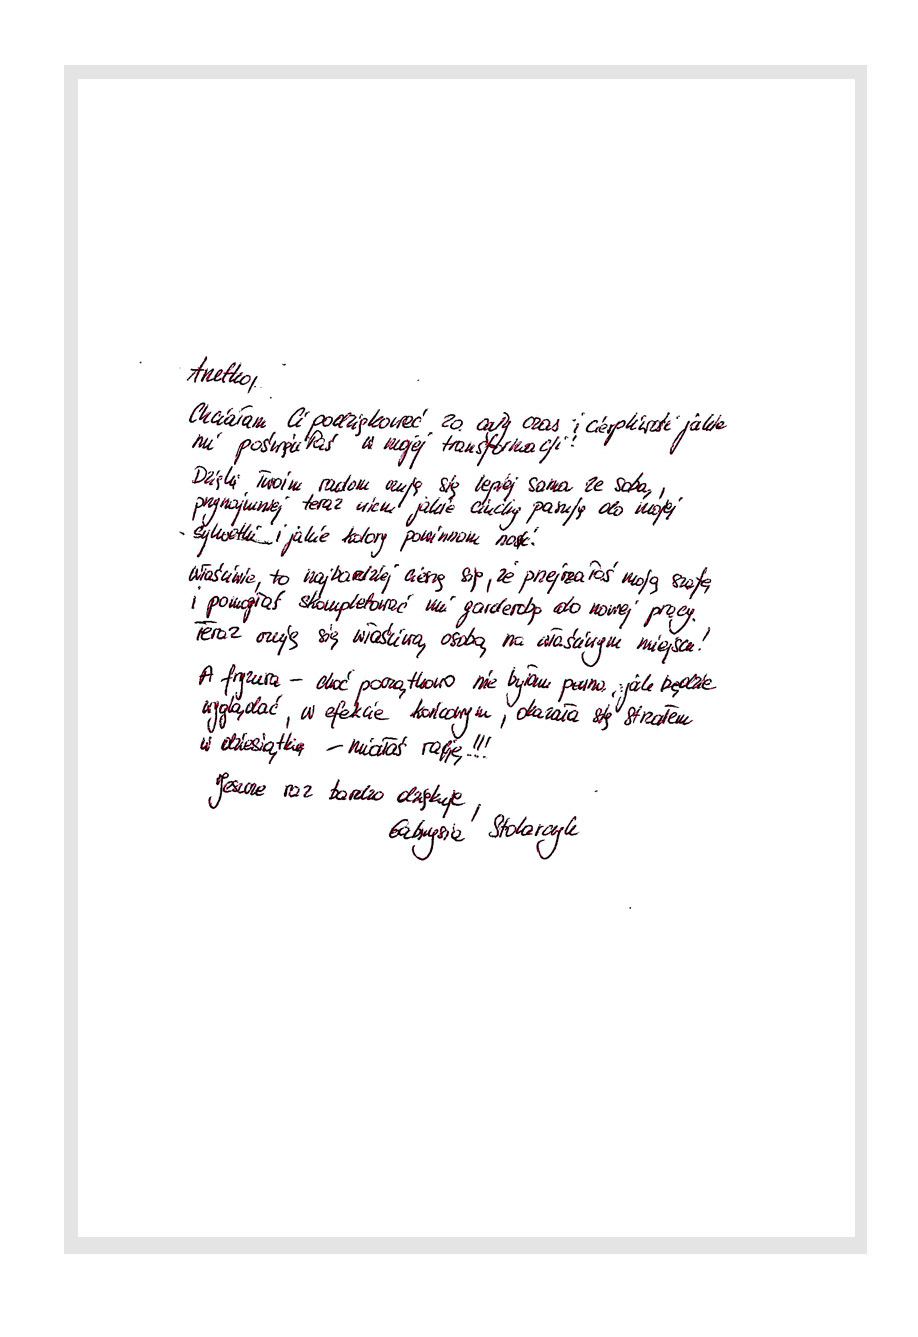 Anetko,
Chciałam Ci podziękować za cały czas i cierpliwość jakie
mi poświęciłaś w mojej transformacji!
Dzięki Twoim radom czuję się lepiej sama ze sobą,
przynajmniej teraz wiem jakie ciuchy pasują do mojej
sylwetki i jakie kolory powinnam nosić.
Właściwie, to najbardziej cieszę się, że przejrzałaś moją szafę
i pomogłaś skompletować mi garderobę do nowej pracy.
Teraz czuję się właściwą osobą na właściwym miejscu!
A fryzura – choć początkowo nie byłam pewna, jak będzie
wyglądać, w efekcie końcowym, okazała się strzałem
w dziesiątkę – miałaś rację!!!
Jeszcze raz bardzo dziękuję,
Gabrysia Stolarczyk